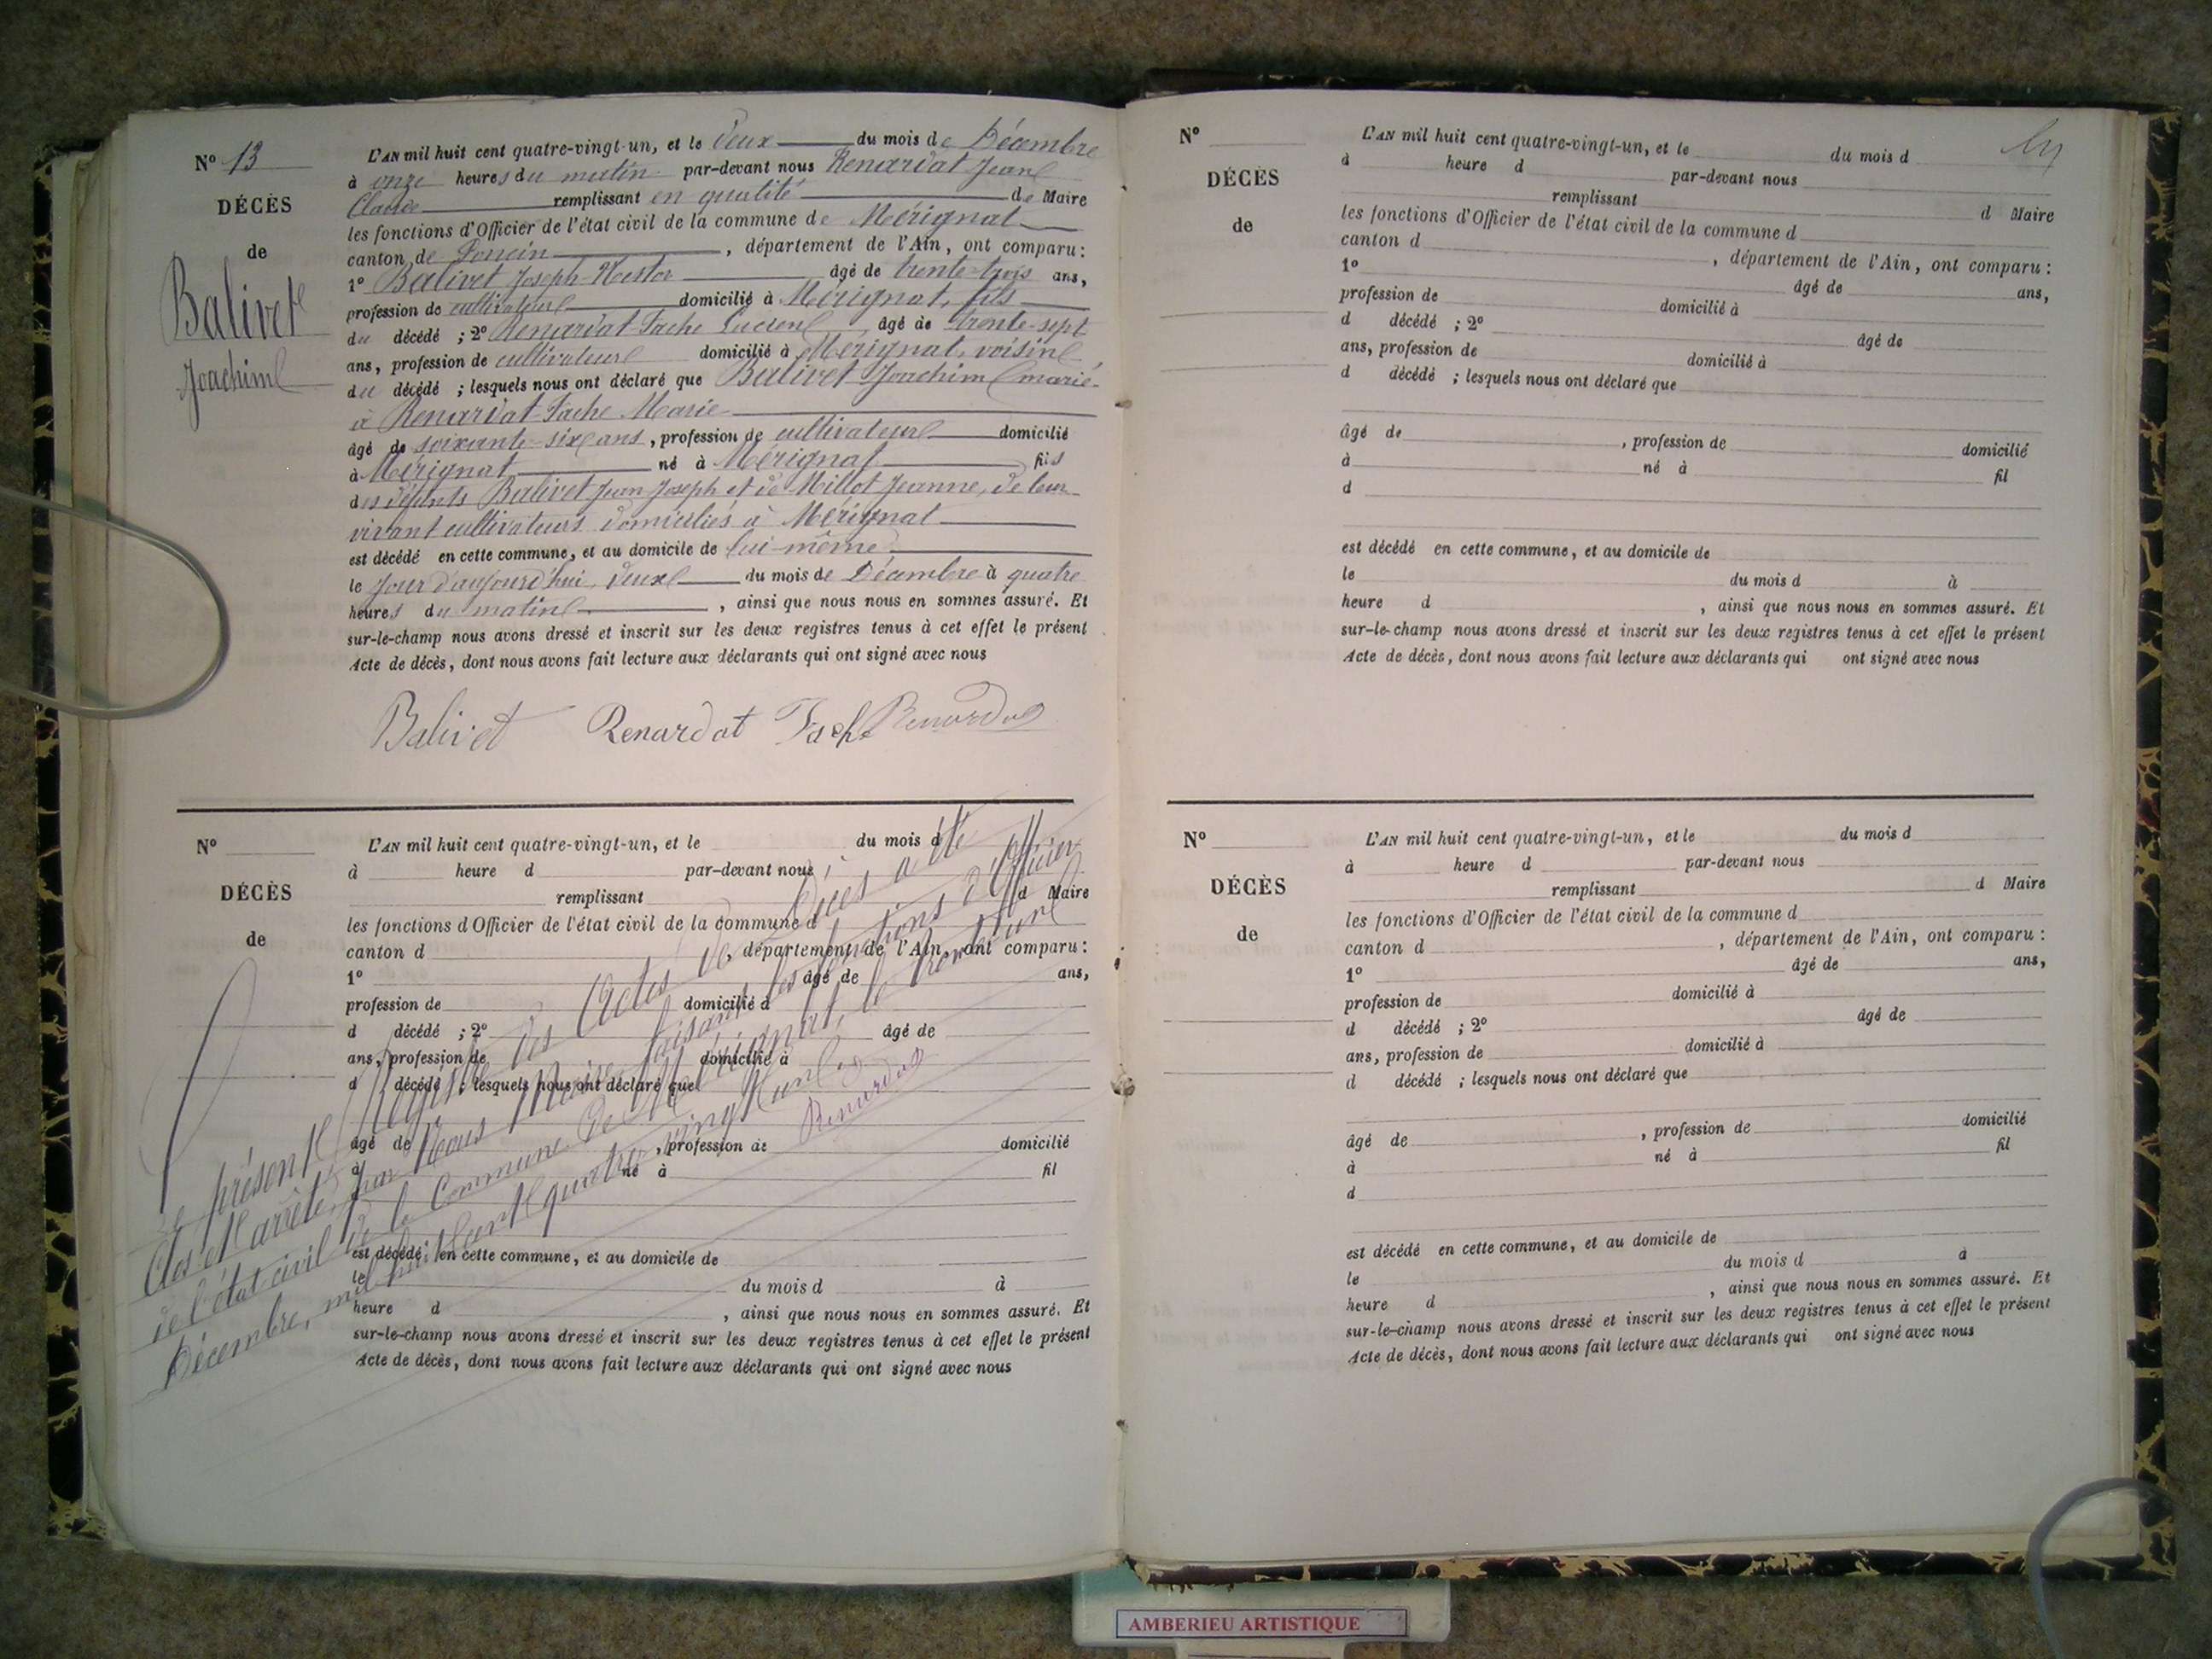 N° 13
DÉCÈS
de
Balivet
Joachim
L'AN mil huit cent quatre-vingt-un, et le deux du mois de Décembre
à onze heures du matin par-devant nous Renardat Jean
Claude remplissant en qualité de Maire
les fonctions d'Officier de l'état civil de la commune de Mérignat
canton de Poncin, département de l'Ain, ont comparu:
1° Balivet Joseph-Nestor âgé de trente-trois ans,
profession de cultivateur domicilié à Mérignat, fils
du décédé ; 2° Renardat-Fache Lucien âgé de trente-sept
ans, profession de cultivateur domicilié à Mérignat, voisin
du décédé ; lesquels nous ont déclaré que Balivet Joachim marié
à Renardat-Fache Marie
âgé de soixante-six ans, profession de cultivateur domicilié
à Mérignat né à Mérignat fils
des défunts Balivet Jean-Joseph et de Millot Jeanne, de leur
vivant cultivateurs domiciliés à Mérignat
est décédé en cette commune, et au domicile de lui-même
le jour d'aujourd'hui deux du mois de Décembre à quatre
heures du matin, ainsi que nous nous en sommes assuré. Et
sur-le-champ nous avons dressé et inscrit sur les deux registres tenus à cet effet le présent
Acte de décès, dont nous avons fait lecture aux déclarants qui ont signé avec nous
Balivet Renardat Fache Renardat
N°
DÉCÈS
de
L'AN mil huit cent quatre-vingt-un, et le du mois d
à heure d par-devant nous
remplissant d Maire
les fonctions d'Officier de l'état civil de la commune d
canton d , département de l'Ain, ont comparu:
1° âgé de ans,
profession de domicilié à
d décédé ; 2° âgé de
ans, profession de domicilié à
d décédé ; lesquels nous ont déclaré que
âgé de , profession de domicilié
à né à fil
est décédé en cette commune, et au domicile de
le du mois d à
heure d , ainsi que nous nous en sommes assuré. Et
sur-le-champ nous avons dressé et inscrit sur les deux registres tenus à cet effet le présent
Acte de décès, dont nous avons fait lecture aux déclarants qui ont signé avec nous
Le présent Registre des Actes de Décès a été
Clos et arrêté, par Nous Maire faisant les fonctions d'Officier
de l'état civil de la Commune de Mérignat, le trente un
Décembre, mil huit cent quatre vingt un
Renardat
N°
DÉCÈS
de
L'AN mil huit cent quatre-vingt-un, et le du mois d
à heure d par-devant nous
remplissant d Maire
les fonctions d'Officier de l'état civil de la commune d
canton d , département de l'Ain, ont comparu:
1° âgé de ans,
profession de domicilié à
d décédé ; 2° âgé de
ans, profession de domicilié à
d décédé ; lesquels nous ont déclaré que
âgé de , profession de domicilié
à né à fil
d
est décédé en cette commune, et au domicile de
le du mois d à
heure d , ainsi que nous nous en sommes assuré. Et
sur-le-champ nous avons dressé et inscrit sur les deux registres tenus à cet effet le présent
Acte de décès, dont nous avons fait lecture aux déclarants qui ont signé avec nous
N°
DÉCÈS
de
L'AN mil huit cent quatre-vingt-un, et le du mois d
à heure d par-devant nous
remplissant d Maire
les fonctions d'Officier de l'état civil de la commune d
canton d , département de l'Ain, ont comparu:
1° âgé de ans,
profession de domicilié à
d décédé ; 2° âgé de
ans, profession de domicilié à
d décédé ; lesquels nous ont déclaré que
âgé de , profession de domicilié
à né à fil
d
est décédé en cette commune, et au domicile de
le du mois d à
heure d , ainsi que nous nous en sommes assuré. Et
sur-le-champ nous avons dressé et inscrit sur les deux registres tenus à cet effet le présent
Acte de décès, dont nous avons fait lecture aux déclarants qui ont signé avec nous
AMBERIEU ARTISTIQUE